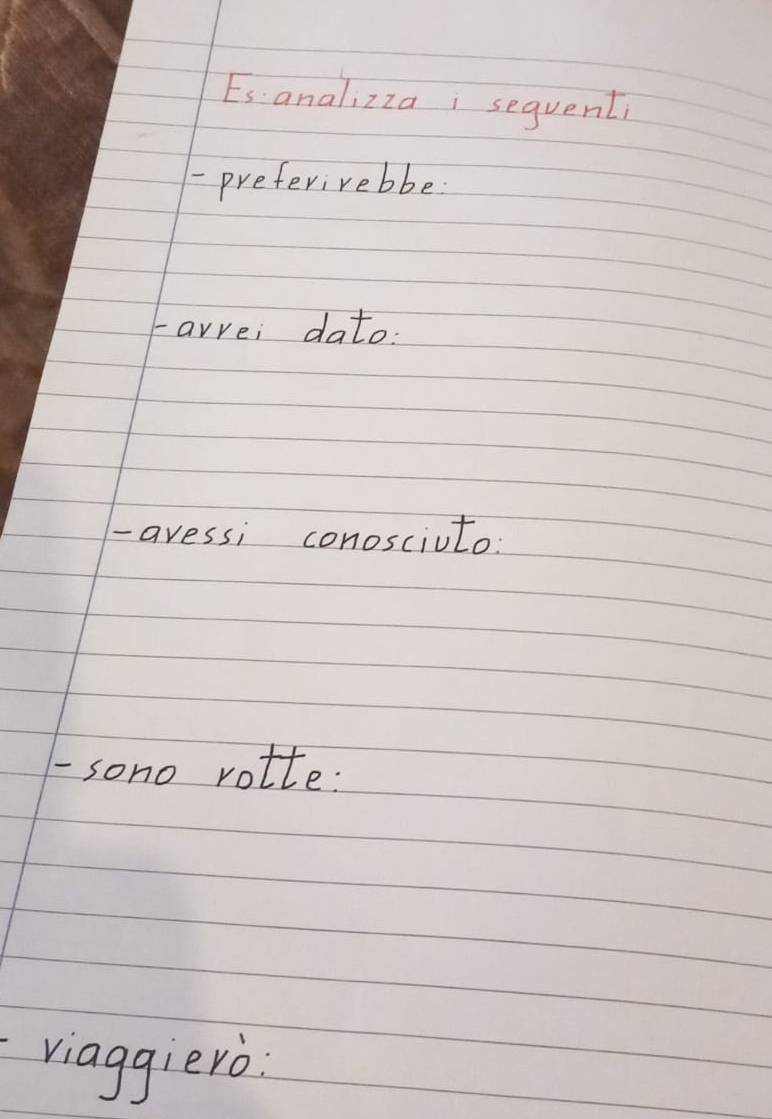 Es: analizza i seguenti
- preferirebbe:
- avrei dato:
- avessi conosciuto:
- sono rotte:
- viaggierò: